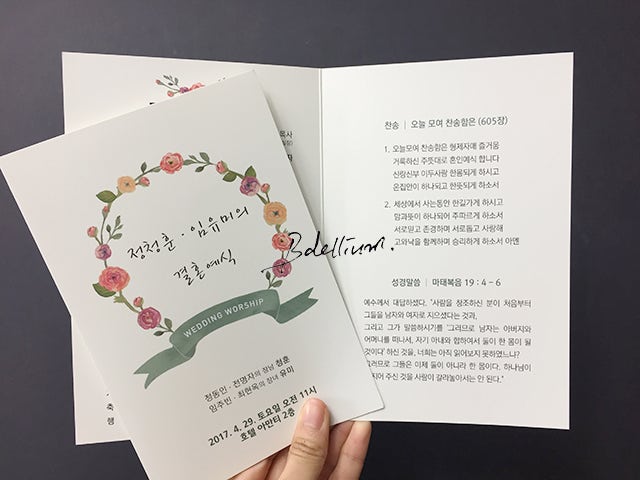 정청훈 · 임유미의
결혼예식
WEDDING WORSHIP
정동인 · 전명자의 장남 청훈
임주빈 · 최현옥의 장녀 유미
2017. 4. 29. 토요일 오전 11시
호텔 아만티 2층
Bdellium.
목사
찬송 | 오늘 모여 찬송함은 (605장)
1. 오늘모여 찬송함은 형제자매 즐거움
거룩하신 주뜻대로 혼인예식 합니다
신랑신부 이두사람 한몸되게 하시고
온집안이 하나되고 한뜻되게 하소서
2. 세상에서 사는동안 한길가게 하시고
맘과뜻이 하나되어 주따르게 하소서
서로믿고 존경하며 서로돕고 사랑해
고와낙을 함께하며 승리하게 하소서 아멘
성경말씀 | 마태복음 19 : 4 – 6
예수께서 대답하셨다. "사람을 창조하신 분이 처음부터
그들을 남자와 여자로 지으셨다는 것과,
그리고 그가 말씀하시기를 '그러므로 남자는 아버지와
어머니를 떠나서, 자기 아내와 합하여서 둘이 한 몸이 될
것이다' 하신 것을, 너희는 아직 읽어보지 못하였느냐?
그러므로 그들은 이제 둘이 아니라 한 몸이다. 하나님이
지어 주신 것을 사람이 갈라놓아서는 안 된다."
축
행